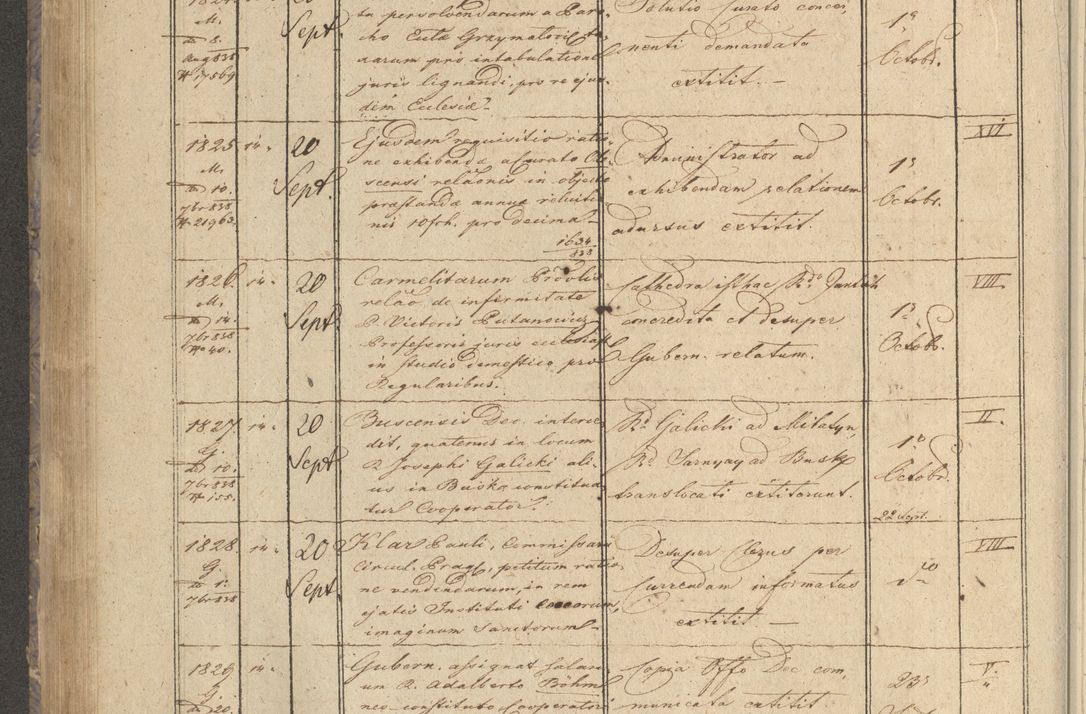 Sept.
tu persolvendarum a Paro
cho Eccl̃ae Grzymaloviensi ta
xarum pro intabulatione
juris lignandi, pro re ejus
dem Ecclesiae
Solutio Curato concer
nenti demandata
extitit. —
1ª
Octobr.
8.
Aug 838
N 17569
1825 in.
M.
10.
7br 838
N. 21963.
20
Sept.
Ejusdem requisitio ratio
ne exhibenda a Curato
scensi relaõnis in objecto
praestanda annua reluitio
nis 10 frh. pro decima
1634
838
Administrator ad
exhibendam relationem
adursus extitit.
1ª
Octobr.
XVI
1826. in.
M.
14.
7br 838
No 40.
20
Sept.
Carmelitarum Prõvlis
relaõ de infirmitate
P. Victoris Putanowicz
Professoris juris ecclesiast
in studio domestico pro
Regularibus.
Cathedra isthac Rdo
concredita et desuper
Gubern. relatum.
1ª
Octobr.
VIII
1827. in.
G.
10.
7br 838
N 155.
20
Sept.
Buscensis Dec. interce
dit, quatenus in locum
R. Josephi Galicki ali
us in Buska constitua
tur Cooperator.
Rd. Galicki ad Milatyn,
Rd. ad Busk
translocati extiterunt.
1ª
Octobr.
22 Sept.
II.
1828. in.
G.
1.
7br 838
20
Sept.
Klar Pauli, Commissarii
Circul. Prag, petitum ratio
ne vendendarum, in rem
ejatis Instituti coecorum,
imaginum Sanctorum
Desuper Clerus per
Currendam informatus
extitit. —
VIII
1829 in.
G.
20.
Gubern. assignat salari
um R. Adalberto Böhm
neo constituto Cooperatori
Copia Offo Dec. com
municata extitit
23
V.